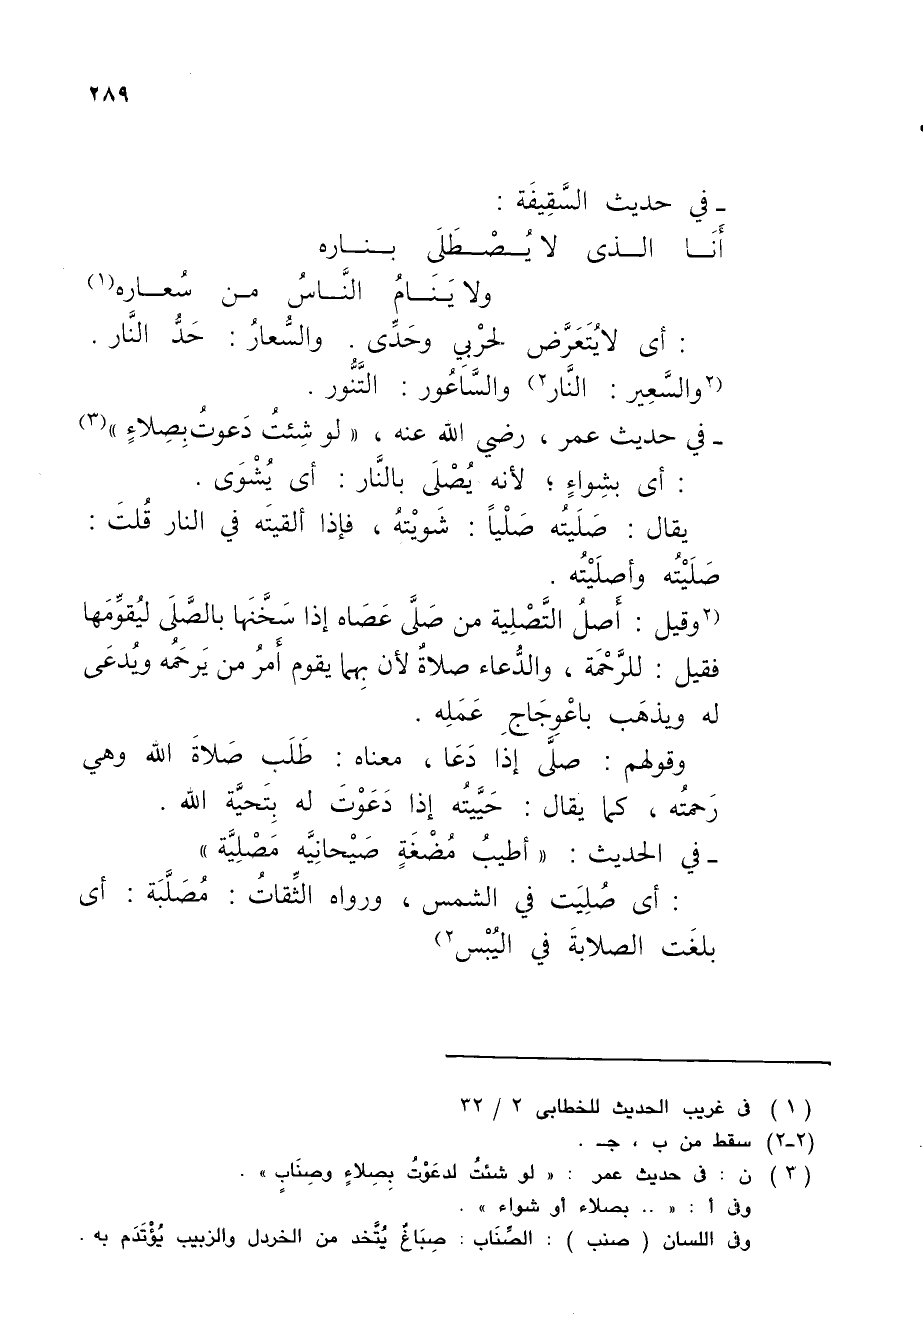 ٢٨٩
ـ في حديث السَّقِيفَة :
أَنَــا الــذى لا يُــصْــطَلَى بــنــاره
ولا يَنَــامُ النَّــاسُ مــن سُعــاره(١)
: أى لايُتَعَرَّض لحَرْبِي وحَدِّى . والسُّعارُ : حَدُّ النَّار .
(٢والسَّعِير : النَّار٢) والسَّاعُور : التَّنُّور .
ـ في حديث عمر ، رضي الله عنه ، « لو شِئتُ دَعوتُ بِصلاءٍ »(٣)
: أى بشِواءٍ ؛ لأنه يُصْلَى بالنَّار : أى يُشْوَى .
يقال : صَلَيتُه صَلْياً : شَويْتهُ ، فإذا ألقيتَه في النار قُلتَ :
صَلَيْتُه وأصلَيْتُه .
(٢وقيل : أَصلُ التَّصْلِية من صَلَّى عَصَاه إذا سَخَّنَها بالصَّلَى ليُقوِّمَها
فقيل : للرَّحْمَة ، والدُّعاء صلاةٌ لأن بِهِما يقوم أَمرُ من يَرحَمُه ويُدعَى
له ويذهَب باعْوِجَاجِ عَمَلِه .
وقولهم : صلَّى إذا دَعَا ، معناه : طَلَب صَلاةَ الله وهي
رَحمتُه ، كما يقال : حَيَّيتُه إذا دَعَوْتَ له بتَحيَّة الله .
ـ في الحديث : « أطيبُ مُضْغَةٍ صَيْحانِيَّه مَصْلِيَّة »
: أى صُلِيَت في الشمس ، ورواه الثِّقاتُ : مُصَلَّبَة : أى
بلغَت الصلابةَ في اليُبْس٢)
(١) فى غريب الحديث للخطابى ٢ / ٣٢
(٢ـ٢) سقط من ب ، جـ .
(٣) ن : فى حديث عمر : « لو شئتُ لدعَوْتُ بِصلاءٍ وصِنَابٍ » .
وفى أ : « .. بصلاء أو شواء » .
وفى اللسان ( صنب ) : الصِّنَاب : صِبَاغٌ يُتَّخد من الخردل والزبيب يُؤْتَدَم به .